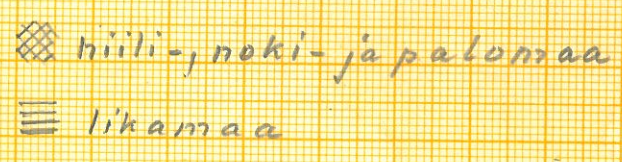 hiili-, noki- ja palomaa
likamaa